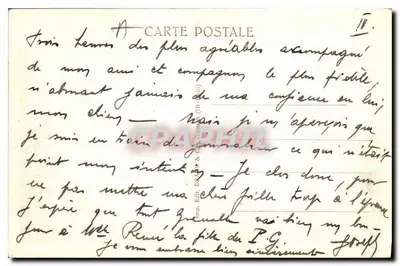 CARTE POSTALE
IV.
Trois heures des plus agréables accompagné
de mon ami et compagnon le plus fidèle,
n'abusant jamais de ma confiance en lui,
mon chien — Mais je m'aperçois que
je suis en train de journaliser ce qui n'était
point mon intention — Je clos donc, pour
ne pas mettre ma chère fille trop à l'épreuve
J'espère que tout Grenelle va bien, un bon-
jour à Mlle Renée la fille du P.G.
Je vous embrasse bien sincèrement Joseph
CARTPHAPTM